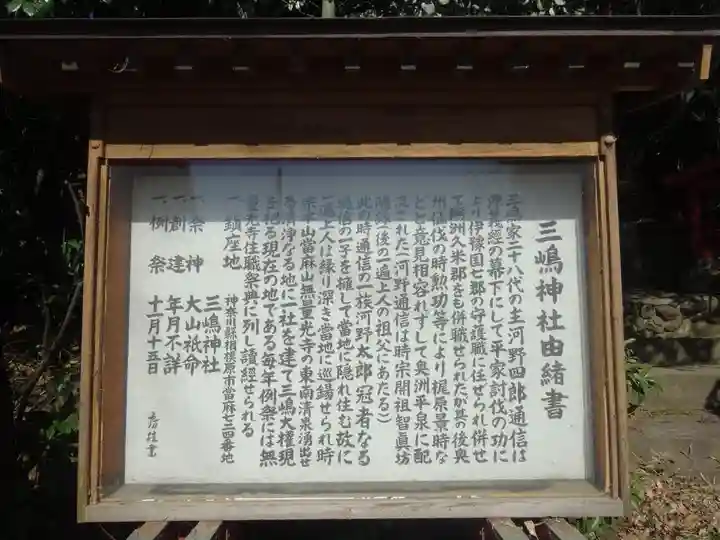 三嶋神社由緒書
三嶋家二十八代の主河野四郎通信は
源義経の幕下にして平家討伐の功に
より伊豫国七郡の守護職に任せられ併せ
て阿洲久米郡をも併職せられたが其の後奥
州征伐の時勲功等により梶原景時な
どと意見相容れずして奥洲平泉に配
流された(河野通信は時宗開祖智眞坊
随縁(後の一遍上人の祖父にあたる)
此の時通信の一族河野太郎冠者なる
通信の一子を擁して當地に隠れ住む故に
一遍上人は縁り深き當地に巡錫せられ時
宗本山當麻山無量光寺の東南清泉湧出せ
る清浄なる地に一社を建て三嶋大権現
を祀る現在の地である毎年例祭には無
量光寺住職祭典に列し讀經せられる
一、鎮座地 神奈川縣相模原市當麻一三四番地
一、祭神 三嶋神社
大山祇命
一、創建 年月不詳
一、例祭 十一月十五日